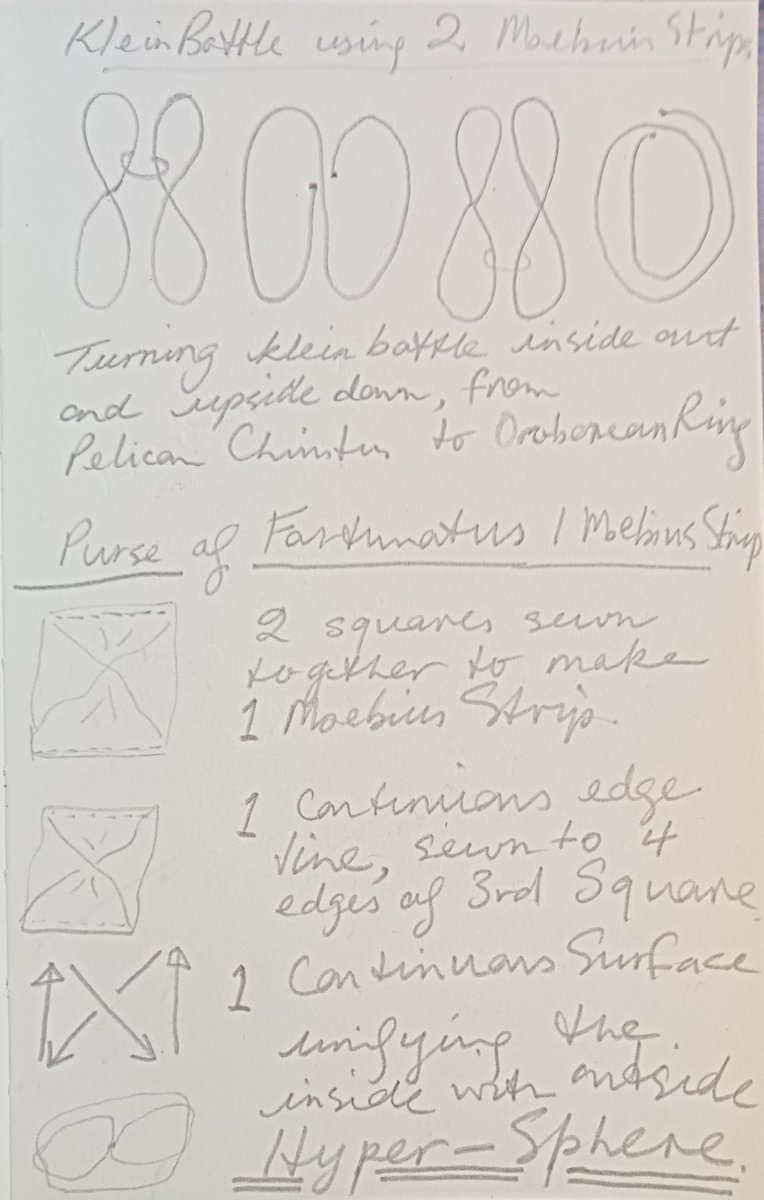 Klein Bottle using 2 Moebius Strips
Turning klein bottle inside out
and upside down, from
Pelican to Oroborean Ring
Purse of Fortunatus / Moebius Strip
2 squares sewn
together to make
1 Moebius Strip.
1 Continuous edge
line, sewn to 4
edges of 3rd Square
1 Continuous Surface
unifying the
inside with outside
Hyper-Sphere.